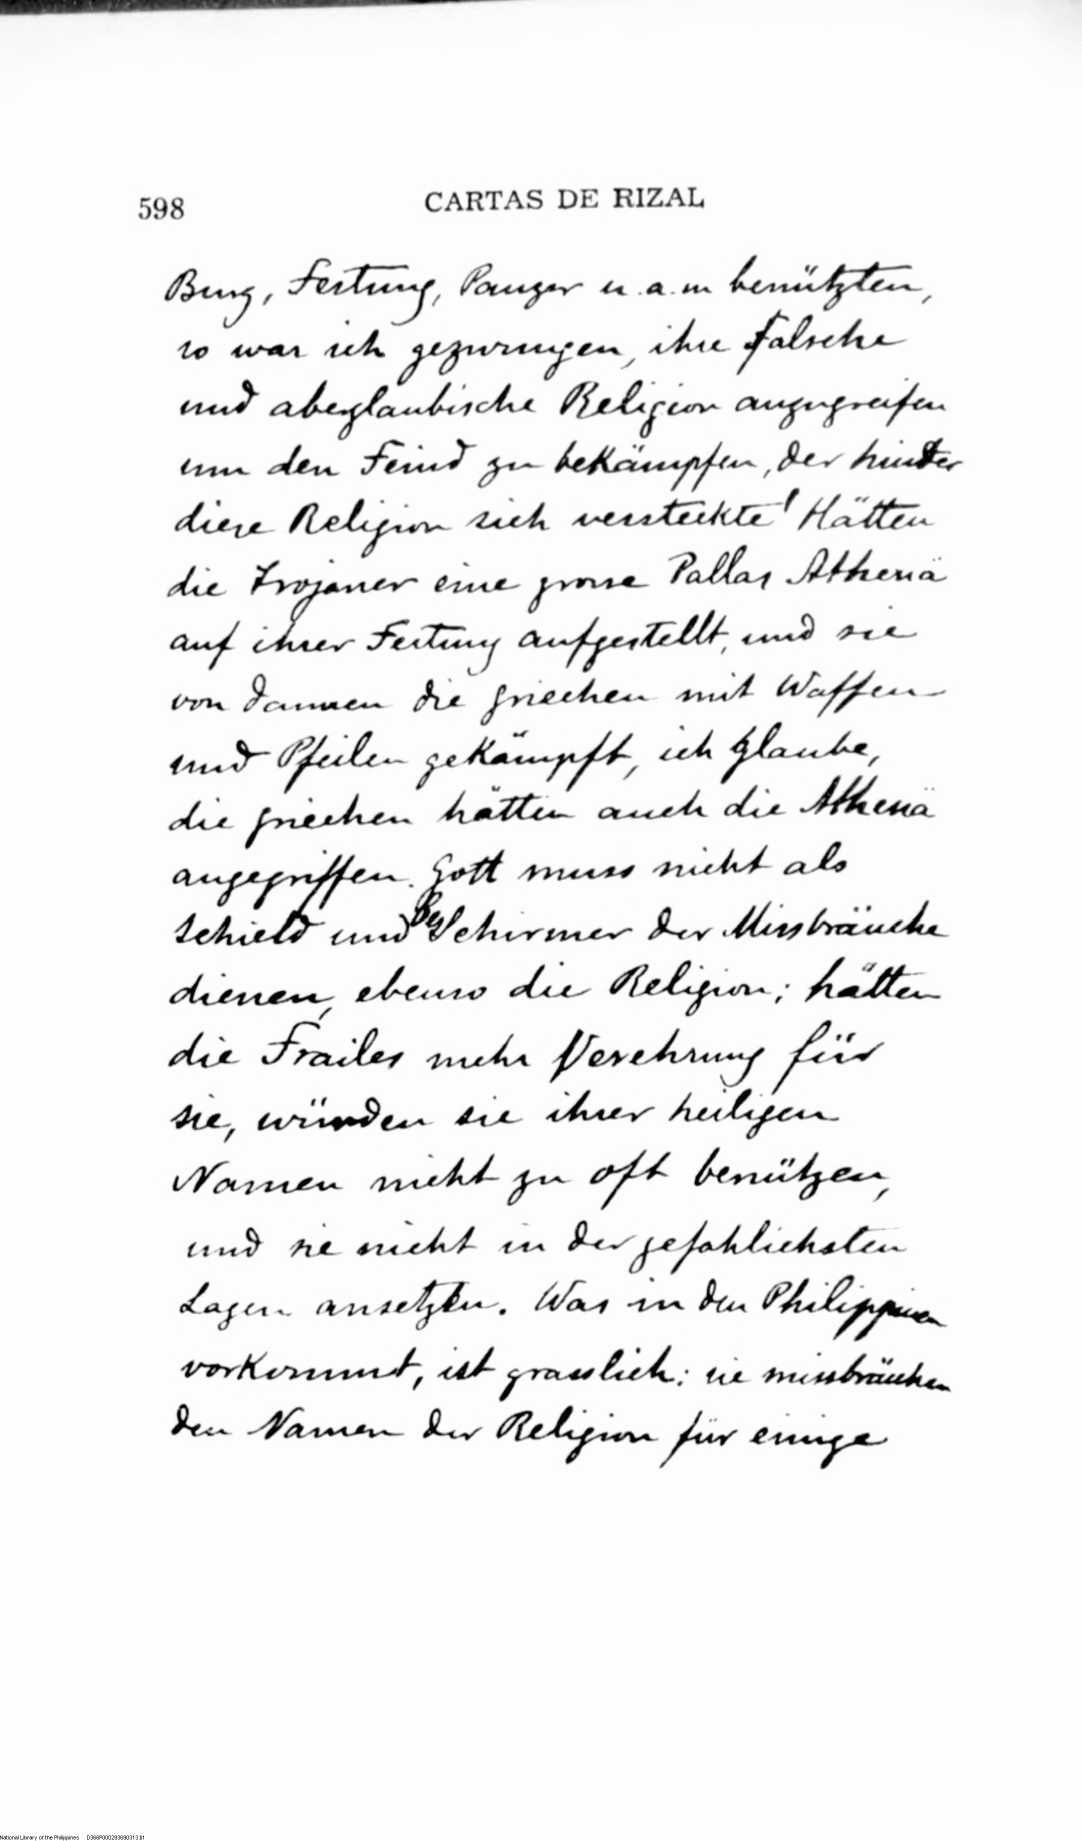 598 CARTAS DE RIZAL
Burg, Festung, Panzer u. a. m benützten,
so war ich gezwungen, ihre falsche
und aberglaubische Religion anzugreifen
um den Feind zu bekämpfen, der hinter
diese Religion sich versteckte! Hätten
die Trojaner eine grosse Pallas Athenä
auf ihrer Festung aufgestellt, und sie
von dannen die Griechen mit Waffen
und Pfeilen gekämpft, ich glaube,
die Griechen hätten auch die Athenä
angegriffen. Gott muss nicht als
Schield und BeSchirmer der Missbräuche
dienen, ebenso die Religion; hätten
die Frailes mehr Verehrung für
sie, würden sie ihrer heiligen
Namen nicht zu oft benützen,
und sie nicht in der gefahlichsten
Lagen ansetzten. Was in den Philippinen
vorkommt, ist grasslich: sie missbräuchen
den Namen der Religion für einige
National Library of the Philippines